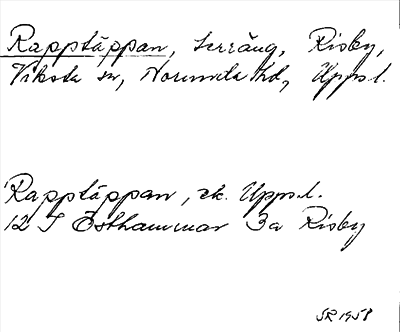 Rapptäppan, terräng, Risby,
Viksta sn, Norunda hd, Upps.l.
Rapptäppan, ek. Upps.l.
12 I Östhammar 3a Risby
SR 1958